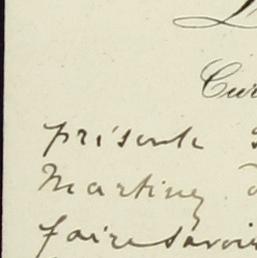 Cur
présente
Martiney
faire savoir